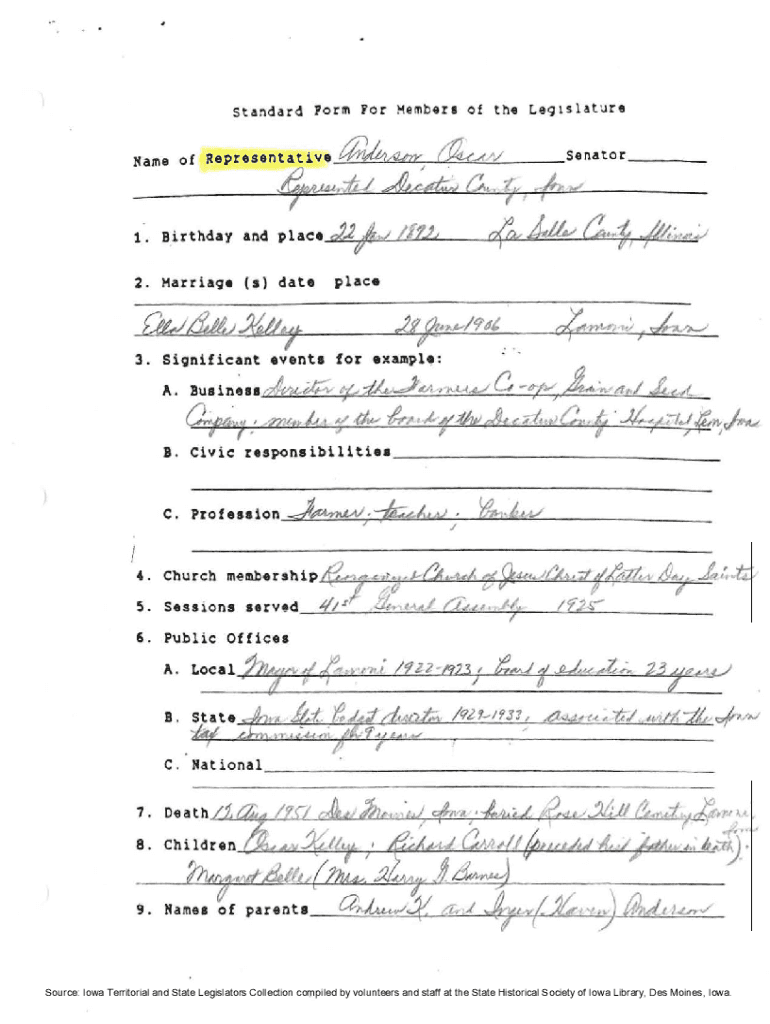 Standard Form For Members of the Legislature
Name of Representative Anderson, Oscar Senator
Represented Decatur County, Iowa
1. Birthday and place 22 Jan 1892 La Salle County, Illinois
2. Marriage (s) date place
Ella Belle Kelley 28 June 1906 Lamoni, Iowa
3. Significant events for example:
A. Business Director of the Farmers Co-op, Grain and Seed
Company; member of the board of the Decatur County Hospital, Leon, Iowa
B. Civic responsibilities
C. Profession Farmer; teacher; banker
4. Church membership Reorganized Church of Jesus Christ of Latter Day Saints
5. Sessions served 41st General Assembly 1925
6. Public Offices
A. Local Mayor of Lamoni 1922-1923; board of education 23 years
B. State Iowa State budget director 1929-1933; associated with the Iowa
tax commission for 9 years
C. National
7. Death 12 Aug 1951 Des Moines, Iowa; buried Rose Hill Cemetery, Lamoni,
Iowa
8. Children Oscar Kelley; Richard Carroll (preceded his father in death);
Margaret Belle (Mrs. Harry G. Barnes)
9. Names of parents Andrew K. and Inger (Haven) Anderson
Source: Iowa Territorial and State Legislators Collection compiled by volunteers and staff at the State Historical Society of Iowa Library, Des Moines, Iowa.